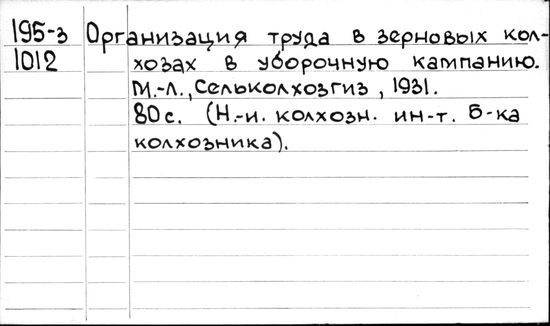 195-з Организация труда в зерновых кол-
1012 хозах в уборочную кампанию.
М.-Л., Сельколхозгиз, 1931.
80 с. (Н.-и. колхозн. ин-т. Б-ка
колхозника).